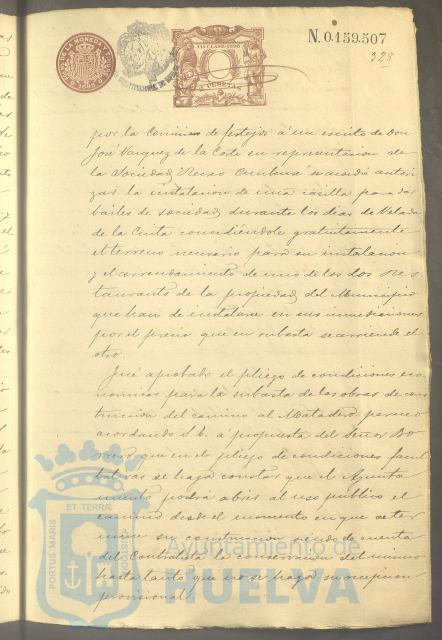 N. 0.159.507
328
DE LA MONEDA Y
11ª CLASE-1895
2 PESETAS
por la Comision de festejos á un escrito de Don
José Vazquez de la Corte en representacion de
la Sociedad Recreo se acordó autori-
zar la instalacion de una casilla para dar
bailes de sociedad durante los dias de Velada
de la Cinta concediendole gratuitamente
el terreno necesario para su instalacion
y el arrendamiento de uno de los dos res-
taurants de la propiedad del Municipio
que han de instalarse en sus inmediaciones
por el precio que en subasta se arriende el
otro.
Fué aprobado el pliego de condiciones eco-
nomicas para la subasta de las obras de cons-
truccion del camino al Matadero
acordando S. E. á propuesta del Señor Bo-
rrero que en el pliego de condiciones facul-
tativas se haga constar que el Ayunta-
miento podrá abrir al uso publico el
camino desde el momento en que se ter-
mine su construccion siendo de cuenta
del Contratista la conservacion del mismo
hasta tanto que no se haga su recepcion
provisional
PORTUS MARIS
ET TERRÆ
CUSTODIA
Ayuntamiento de
HUELVA